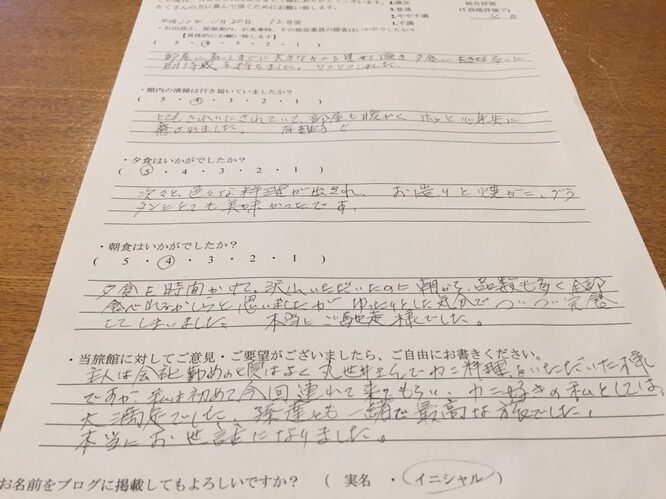 たくさんの方に喜んで頂くためにお願い致します。
4.満足
3.普通
2.やや不満
1.不満
総合評価
(5段階評価で)
・お出迎え、館内、お食事時、その他従業員の接客はいかがでしたか?
【具体的にお願い致します】
部屋に
ワクワクしました。
・館内の清掃は行き届いていましたか?
( 5 ・ 4 ・ 3 ・ 2 ・ 1 )
とてもきれいにされていて、部屋も暖かく、ホッと心身共に
癒されました。
・夕食はいかがでしたか?
( 5 ・ 4 ・ 3 ・ 2 ・ 1 )
次々と、色々な料理が出され、お造りと焼がに、グラ
タンととても美味かったです。
・朝食はいかがでしたか?
( 5 ・ 4 ・ 3 ・ 2 ・ 1 )
夕食を時間かけて、沢山いただいたのに朝から、品数も多く全部
食べれるかしらと思いましたが ゆったりとした気分で ついつい完食
してしまいました。 本当にご馳走様でした。
・当旅館に対してご意見・ご要望がございましたら、ご自由にお書きください。
主人は会社勤めの頃はよく丸世井さんでカニ料理をいただいた様
ですが、私は初めて今回連れて来てもらい、カニ好きの私としては、
大満足でした。孫達とも一緒で最高な旅でした。
本当にお世話になりました。
お名前をブログに掲載してもよろしいですか? ( 実名 ・ イニシャル )